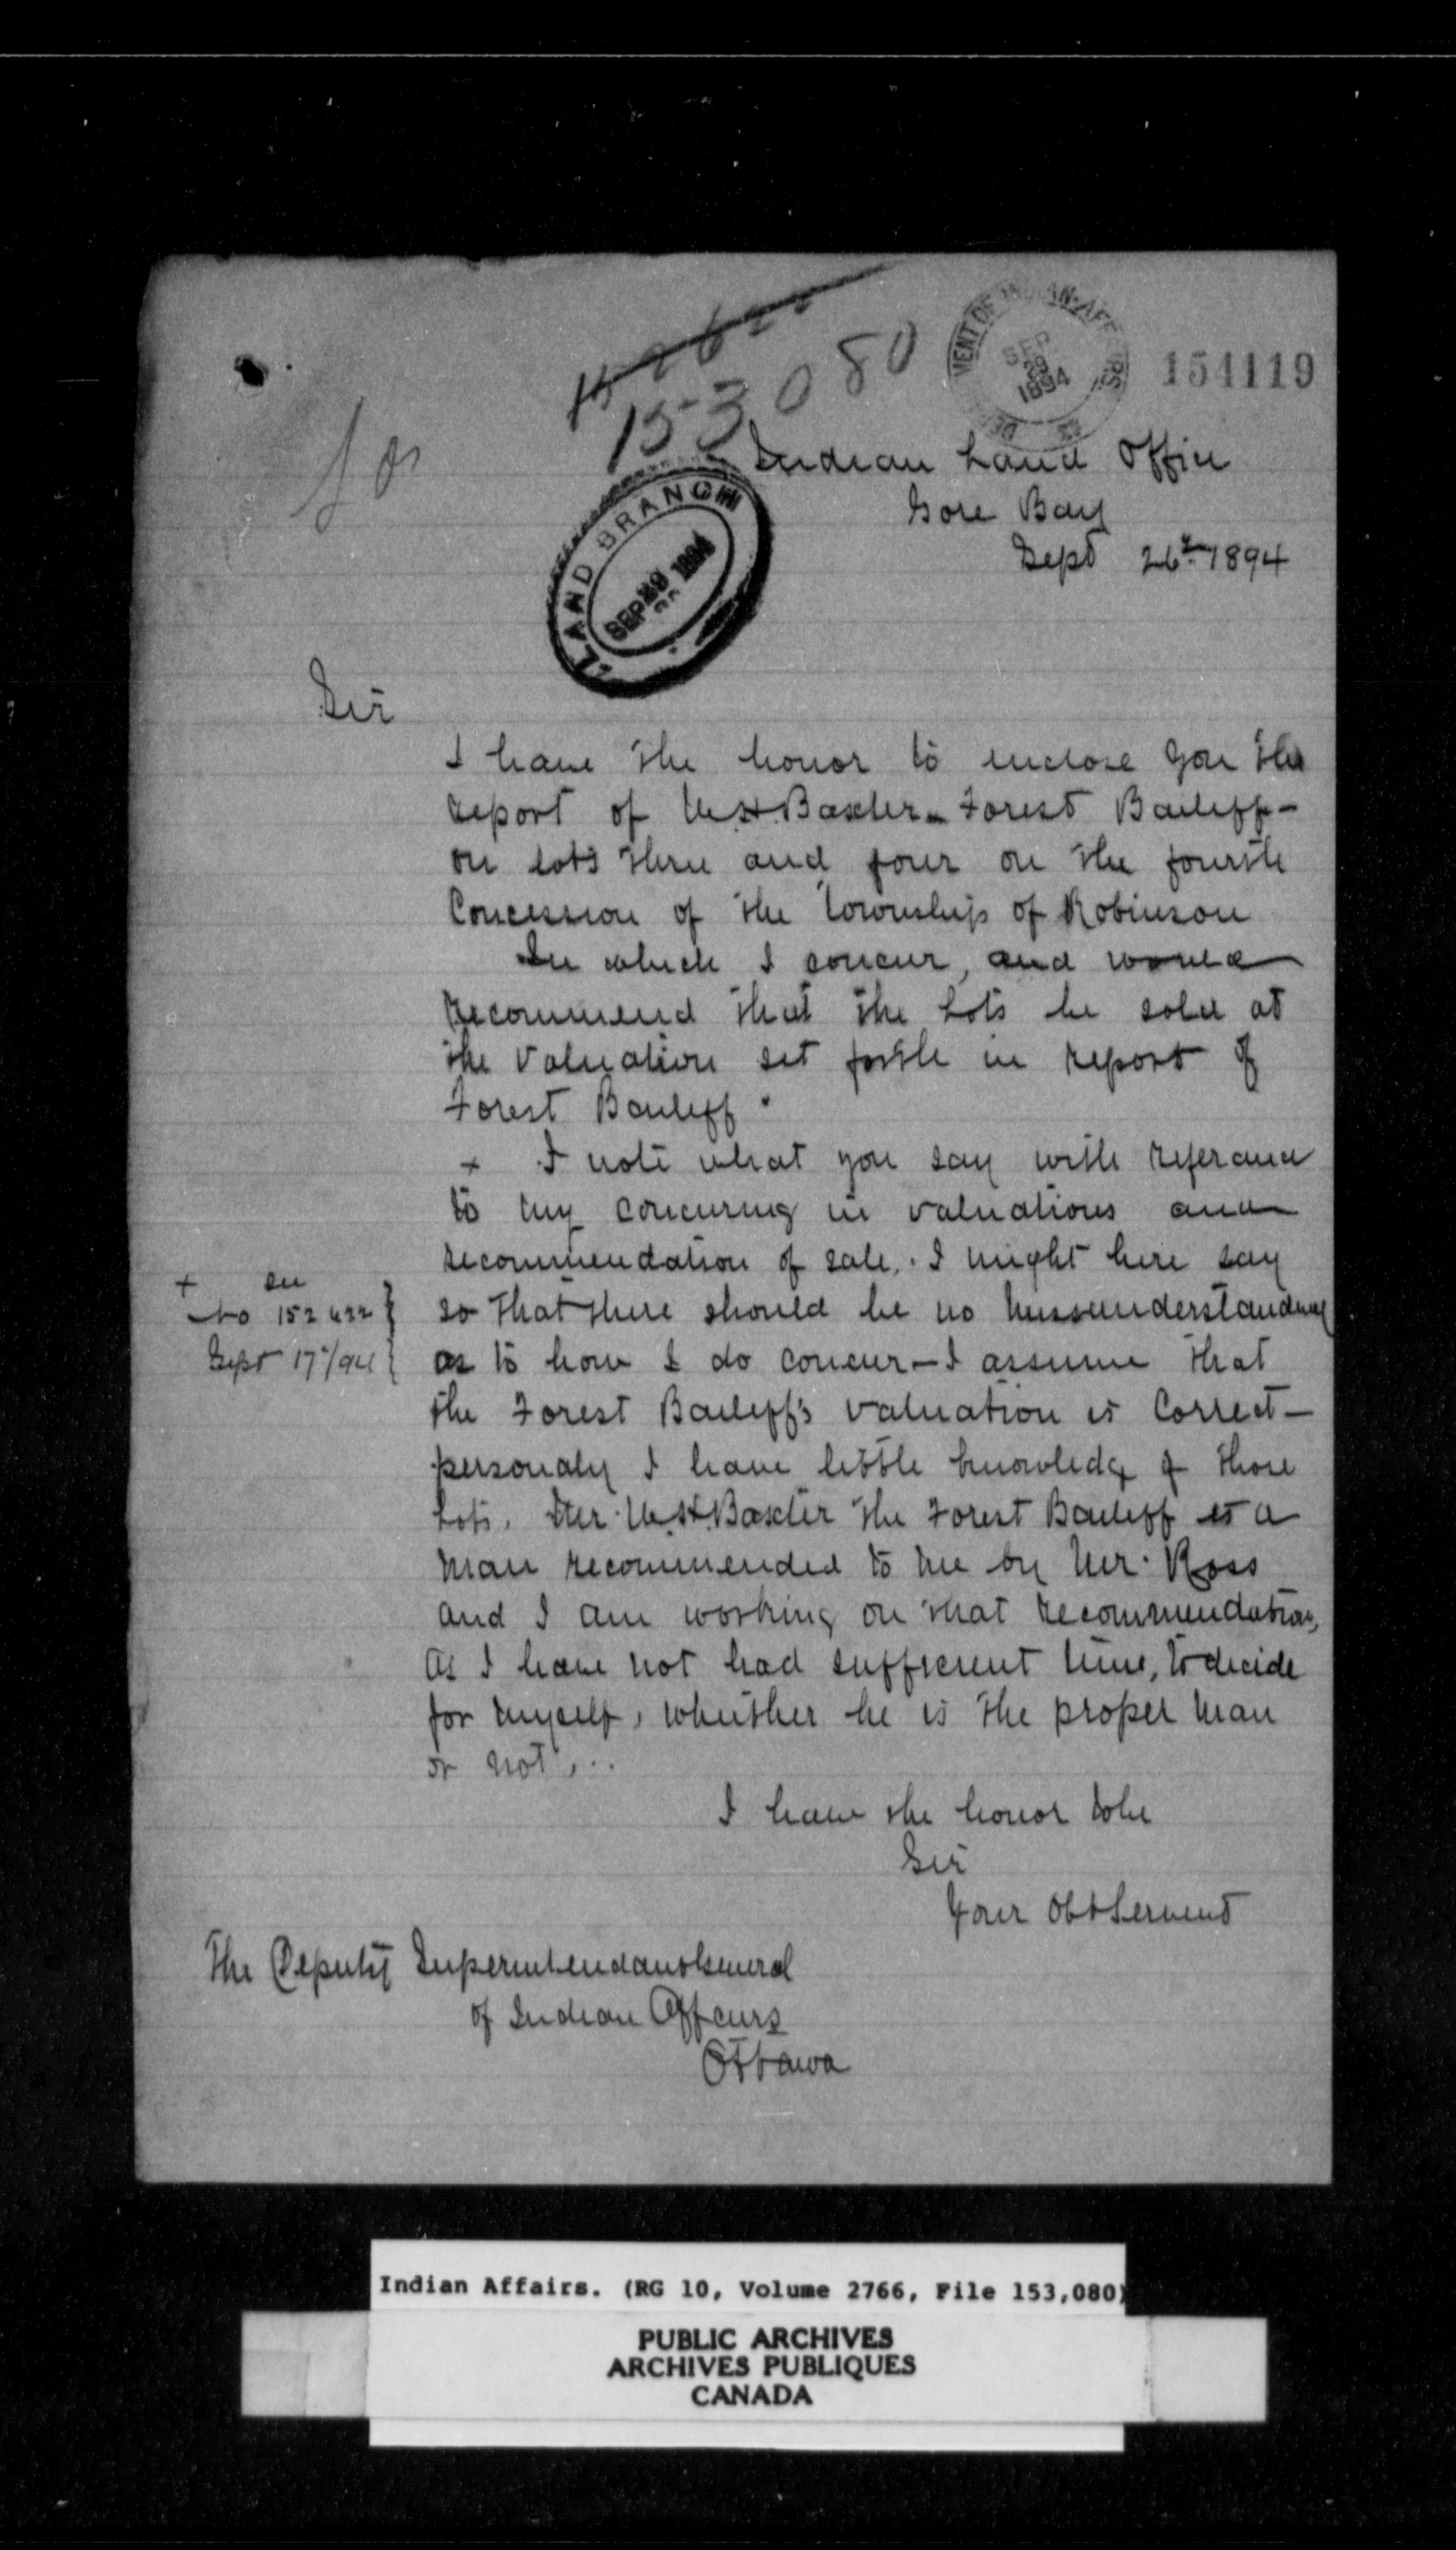 153080
DEPARTMENT OF INDIAN AFFAIRS
SEP
29
1894
154119
Indian Land Office
Gore Bay
Sept 26th 1894
LAND BRANCH
SEP 29 1894
Sir
I have the honor to enclose you the
report of W.H. Baxter - Forest Bailiff -
on lots three and four on the fourth
Concession of the township of Robinson
In which I concur, and would
recommend that the Lots be sold at
the valuation set forth in report of
Forest Bailiff.
+ I note what you say with referance
to my concuring in valuations and
recommendation of sale. I might here say
+ su
No 152622
Sept 17/94
so that there should be no missunderstanding
as to how I do concur - I assume that
the Forest Bailiff's valuation is Correct -
personaly I have little knowledg of those
Lots. Mr. W.H. Baxter the Forest Bailiff is a
man recommended to me by Mr. Ross
and I am working on that recommendation,
as I have not had sufficient time, to decide
for myself, wheither he is the proper man
or not...
I have the honor to be
Sir
Your Obt Servent
The Deputy Superintendant General
of Indian Affairs
Ottawa
Indian Affairs. (RG 10, Volume 2766, File 153,080)
PUBLIC ARCHIVES
ARCHIVES PUBLIQUES
CANADA